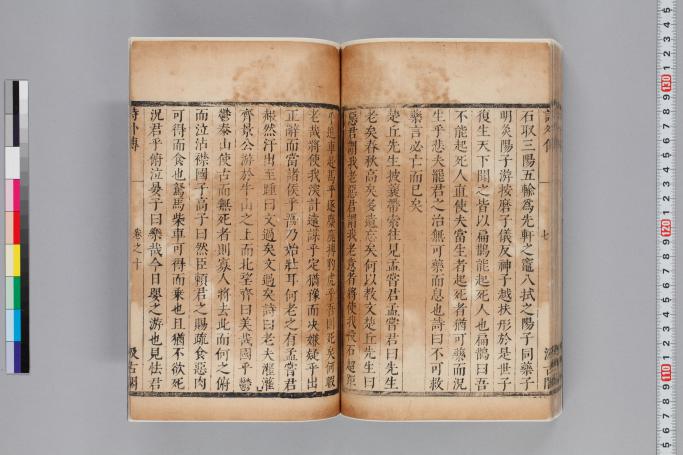 石取三陽五輸爲先軒之竈八拭之陽子同藥子
明灸陽子游按磨子儀反神子越扶形於是世子
復生天下聞之皆以扁鵲能起死人也扁鵲曰吾
不能起死人直使夫當生者起死者猶可藥而況
生乎悲夫罷君之治無可藥而息也詩曰不可救
藥言必亡而已矣
楚丘先生披蓑帶索往見孟嘗君孟嘗君曰先生
老矣春秋高矣多遺忘矣何以教文楚丘先生曰
惡君謂我老惡君謂我老意者將使我投石超距
乎追車赴馬乎逐麋鹿搏豹虎乎吾則死矣何暇
老哉將使我深計遠謀乎定猶豫而決嫌疑乎出
正辭而當諸侯乎吾乃始壯耳何老之有孟嘗君
赧然汗出至踵曰文過矣文過矣詩曰老夫灌灌
齊景公游於牛山之上而北望齊曰美哉國乎鬱
鬱泰山使古而無死者則寡人將去此而何之俯
而泣沾襟國子高子曰然臣賴君之賜疏食惡肉
可得而食也駑馬柴車可得而乘也且猶不欲死
況君乎俯泣晏子曰樂哉今日嬰之游也見怯君
詩外傳
卷之十
汲古閣